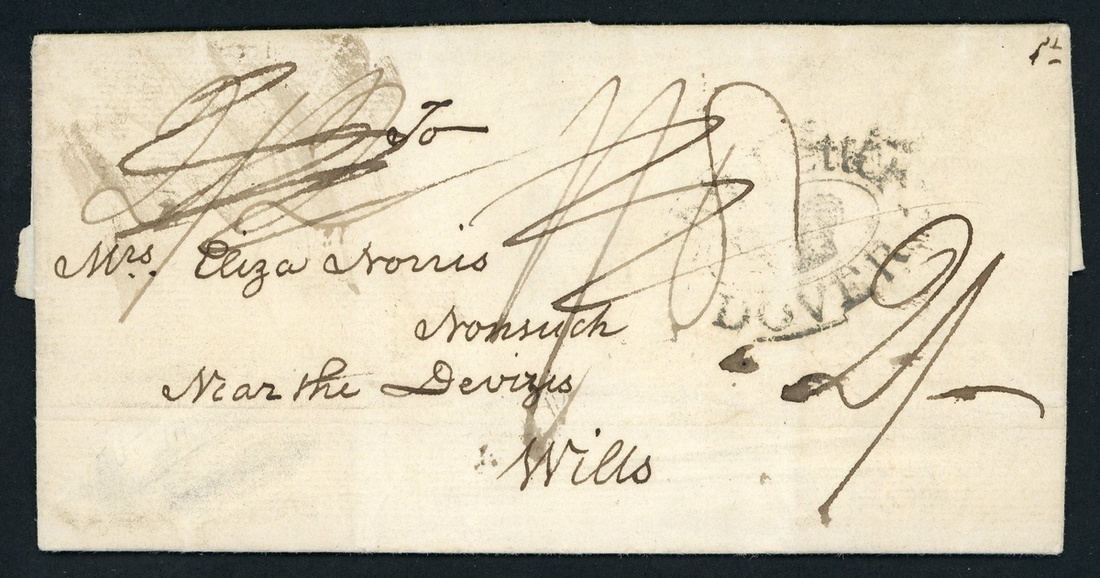 To
Mrs. Eliza Norris
Nonsuch
Near the Devizes
Wilts
DOVER
2/-